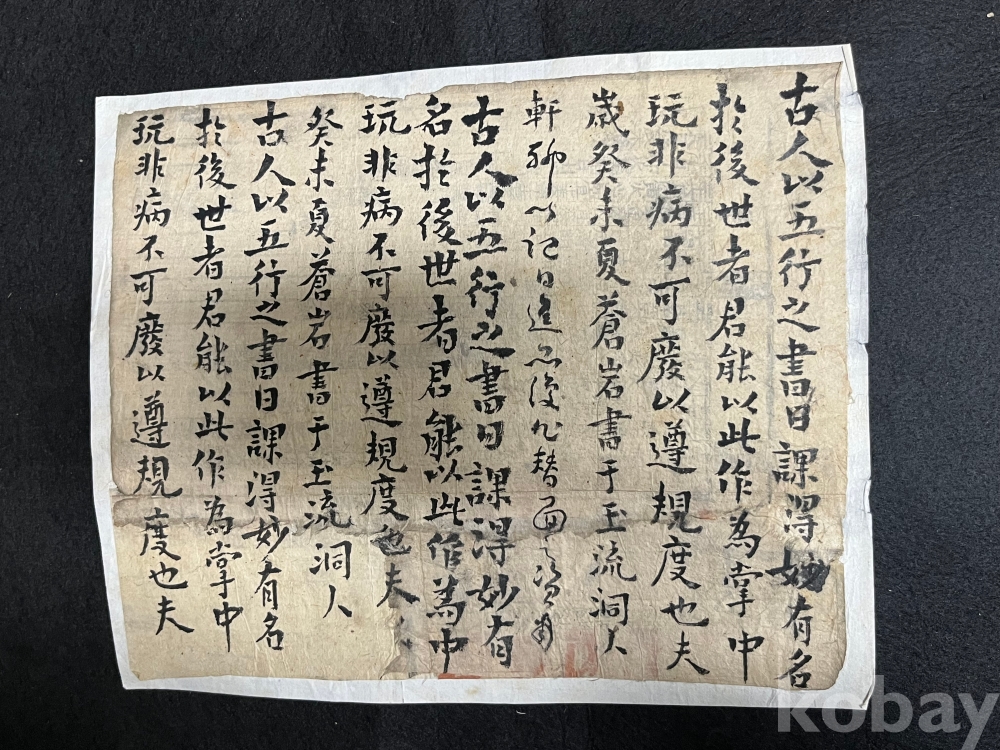 古人以五行之書日課得妙有名
於後世者君能以此作為掌中
玩非病不可廢以遵規度也夫
歲癸未夏蒼岩書于玉流洞人
軒聊以記日進
古人以五行之書日課得妙有
名於後世者君能以此作為中
玩非病不可廢以遵規度也夫
癸未夏蒼岩書于玉流洞人
古人以五行之書日課得妙有名
於後世者君能以此作為掌中
玩非病不可廢以遵規度也夫
kobay